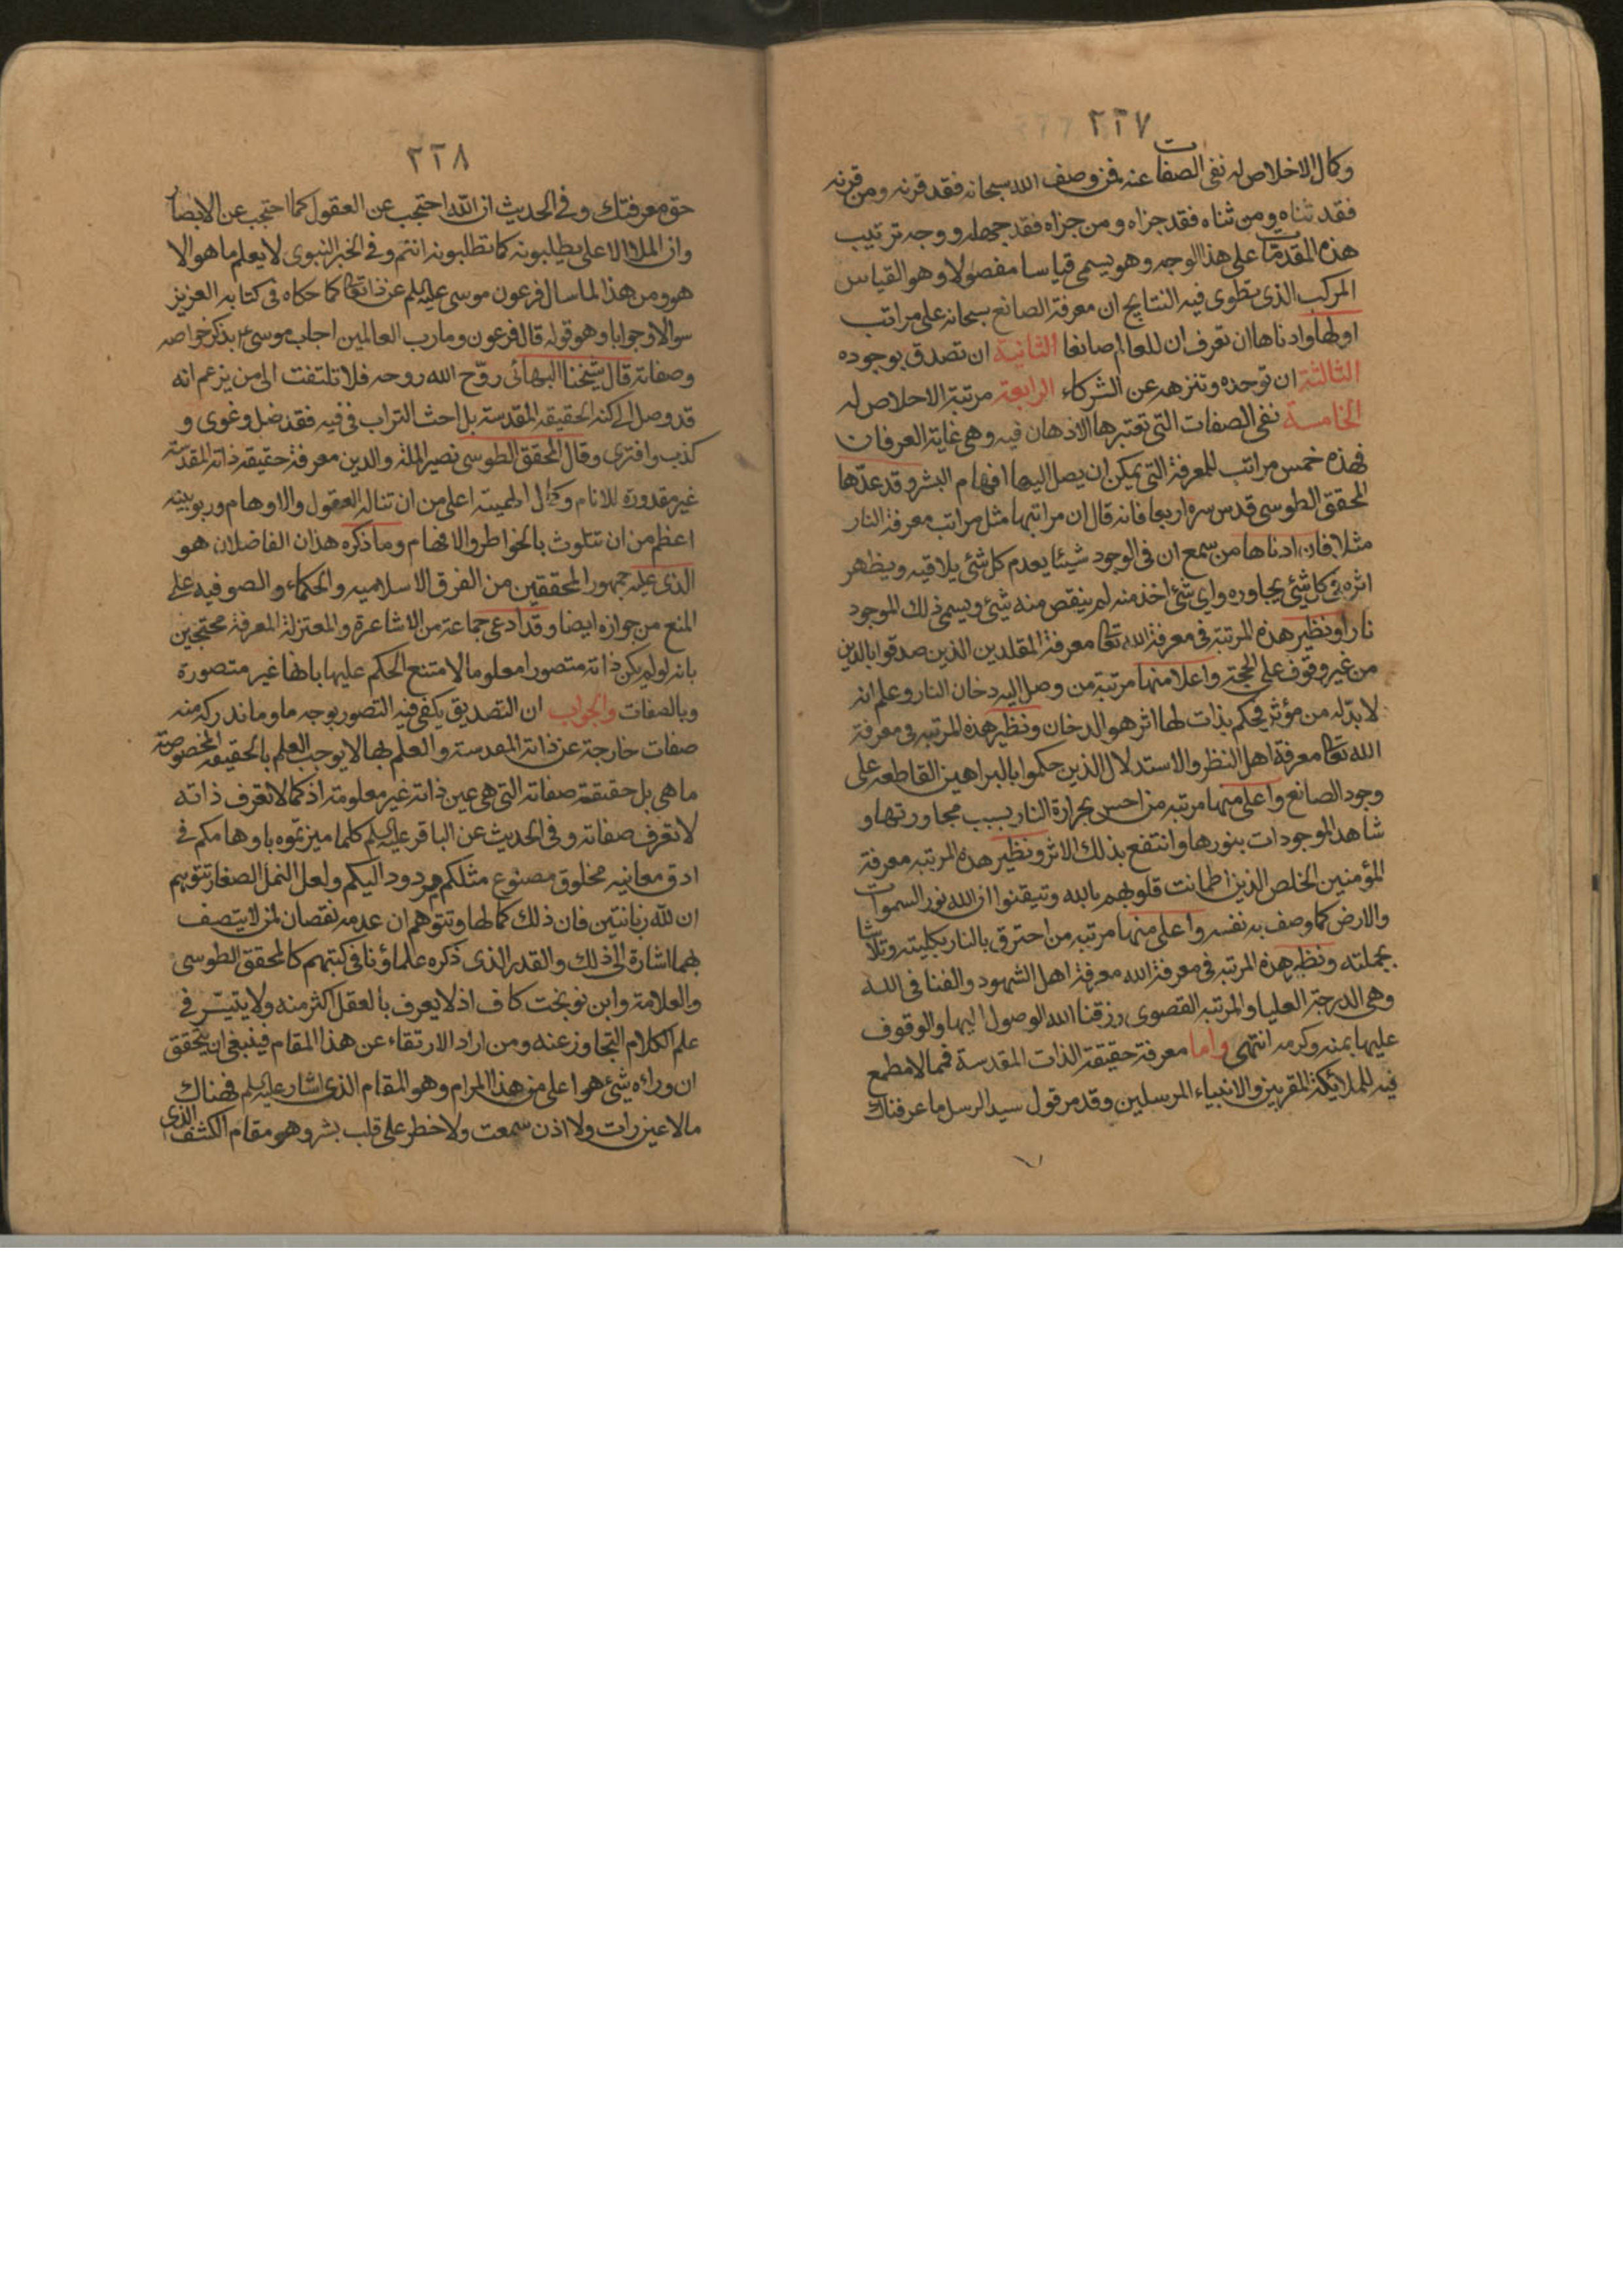 ٢٢٧
وكمال الاخلاص له نفي الصفات عنه فمن وصف الله سبحانه فقد قرنه ومن قرنه
فقد ثناه ومن ثناه فقد جزاه ومن جزاه فقد جهله ووجه ترتيب
هذه المقدمات على هذا الوجه وهو يسمى قياسا مفصولا وهو القياس
المركب الذي يطوى فيه النتايج ان معرفة الصانع سبحانه على مراتب
اولها وادناها ان تعرف ان للعالم صانعا الثانية ان تصدق بوجوده
الثالثة ان توحده وتنزهه عن الشركاء الرابعة مرتبة الاخلاص له
الخامسة نفي الصفات التي تعتبرها الاذهان فيه وهي غاية العرفان
فهذه خمس مراتب للمعرفة التي يمكن ان يصل اليها افهام البشر وقد عدّها
المحقق الطوسي قدس سره اربعا فانه قال ان مراتبها مثل مراتب معرفة النار
مثلا فان ادناها من سمع ان في الوجود شيئا يعدم كل شئ يلاقيه ويظهر
اثره في كل شئ يجاوره واي شئ اخذ منه لم ينقص منه شئ ويسمى ذلك الموجود
نارا ونظير هذه المرتبة في معرفة الله تعالى معرفة المقلدين الذين صدقوا بالدين
من غير وقوف على الحجة واعلا منها مرتبة من وصل اليه دخان النار وعلم انه
لا بدّ له من مؤثر فيحكم بذات لها اثر هو الدخان ونظير هذه المرتبة في معرفة
الله تعالى معرفة اهل النظر والاستدلال الذين حكموا بالبراهين القاطعه على
وجود الصانع واعلى منها مرتبه من احس بحرارة النار بسبب مجاورتها و
شاهد الموجودات بنورها وانتفع بذلك الاثر ونظير هذه المرتبه معرفة
المؤمنين الخلص الذين اطمانت قلوبهم بالله وتيقنوا ان الله نور السموات
والارض كما وصف به نفسه واعلى منها مرتبه من احترق بالنار بكليته وتلاشا
بجملته ونظير هذه المرتبه في معرفة الله معرفة اهل الشهود والفنا في الله
وهي الدرجة العليا والمرتبه القصوى رزقنا الله الوصول اليها والوقوف
عليها بمنه وكرمه انتهى واما معرفة حقيقة الذات المقدسة فمما لا مطمع
فيه للملائكة المقربين والانبياء المرسلين وقد مر قول سيد الرسل ما عرفناك
٢٢٨
حق معرفتك وفي الحديث ان الله احتجب عن العقول كما احتجب عن الابصار
وان الملا الاعلى يطلبونه كما تطلبونه انتم وفي الخبر النبوي لا يعلم ما هو الا
هو ومن هذا لما سال فرعون موسى عليه السلم عن ذاته تعالى كما حكاه في كتابه العزيز
سوالا وجوابا وهو قوله قال فرعون وما رب العالمين اجاب موسى ع بذكر خواصه
وصفاته قال شيخنا البهائي روّح الله روحه فلا تلتفت الى من يزعم انه
قد وصل الى كنه الحقيقه المقدسة بل احث التراب في فيه فقد ضل وغوى و
كذب وافترى وقال المحقق الطوسي نصير الملة والدين معرفة حقيقة ذاته المقدسة
غير مقدورة للانام وكمال الهيته اعلى من ان تناله العقول والاوهام وربوبيته
اعظم من ان تتلوث بالخواطر والافهام وما ذكره هذان الفاضلان هو
الذي عليه جمهور المحققين من الفرق الاسلاميه والحكماء والصوفيه على
المنع من جوازه ايضا وقد ادعى جماعة من الاشاعرة والمعتزلة المعرفة محتجين
بانه لو لم يكن ذاته متصورا معلوما لامتنع الحكم عليها بانها غير متصورة
وبالصفات والجواب ان التصديق يكفي فيه التصور بوجه ما وما ندركه منه
صفات خارجة عن ذاته المقدسة والعلم بها لا يوجب العلم بالحقيقه المخصوصة
ما هي بل حقيقة صفاته التي هي عين ذاته غير معلومته اذ كما لا تعرف ذاته
لا تعرف صفاته وفي الحديث عن الباقر عليه السلم كلما ميزتموه باوهامكم في
ادق معانيه مخلوق مصنوع مثلكم مردود اليكم ولعل النمل الصغار تتوهم
ان لله زبانتين فان ذلك كمالها وتتوهم ان عدمه نقصان لمن لا يتصف
بهما اشارة الى ذلك والقدر الذي ذكره علماؤنا في كتبهم كالمحقق الطوسي
والعلامة وابن نوبخت كاف اذ لا يعرف بالعقل اكثر منه ولا يتيسّر في
علم الكلام التجاوز عنه ومن اراد الارتقاء عن هذا المقام فينبغي ان يتحقق
ان وراءه شئ هو اعلى من هذا المرام وهو المقام الذي اشار عليه السلم فهناك
ما لا عين رات ولا اذن سمعت ولا خطر على قلب بشر وهو مقام الكشف الذي